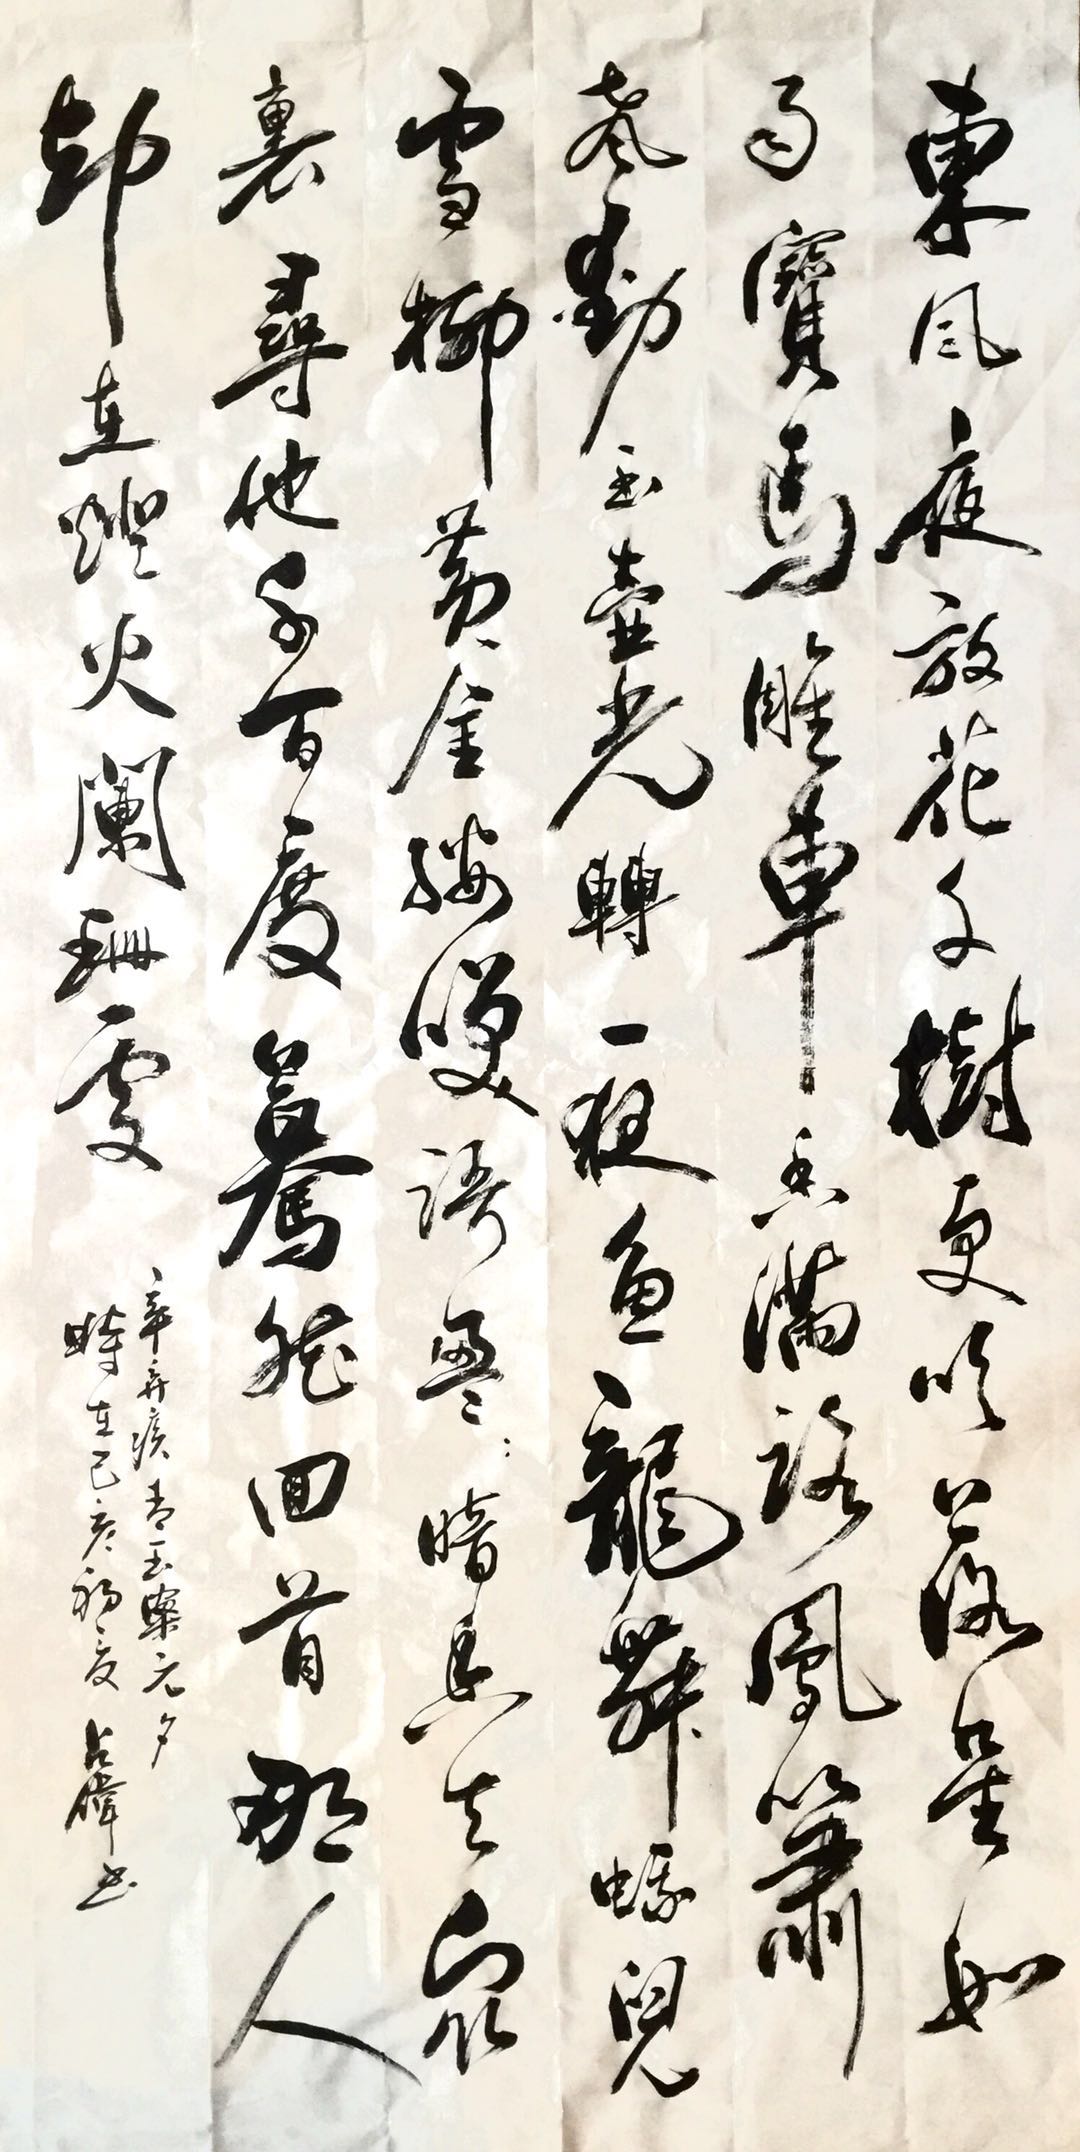 東風夜放花千樹更吹落星如
雨寶馬雕車香滿路鳳簫
聲動玉壺光轉一夜魚龍舞蛾兒
雪柳黃金縷笑語盈〻暗香去衆
裏尋他千百度驀然回首那人
却在燈火闌珊處
辛弃疾青玉案元夕
時在己亥初夏 占輝書